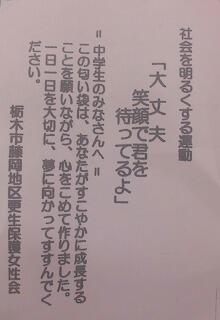 社会を明るくする運動
「大丈夫
笑顔で君を
待ってるよ」
＝中学生のみなさんへ＝
この匂い袋は、あなたがすこやかに成長する
ことを願いながら、心をこめて作りました。
一日一日を大切に、夢に向かってすすんでく
ださい。
栃木市藤岡地区更生保護女性会